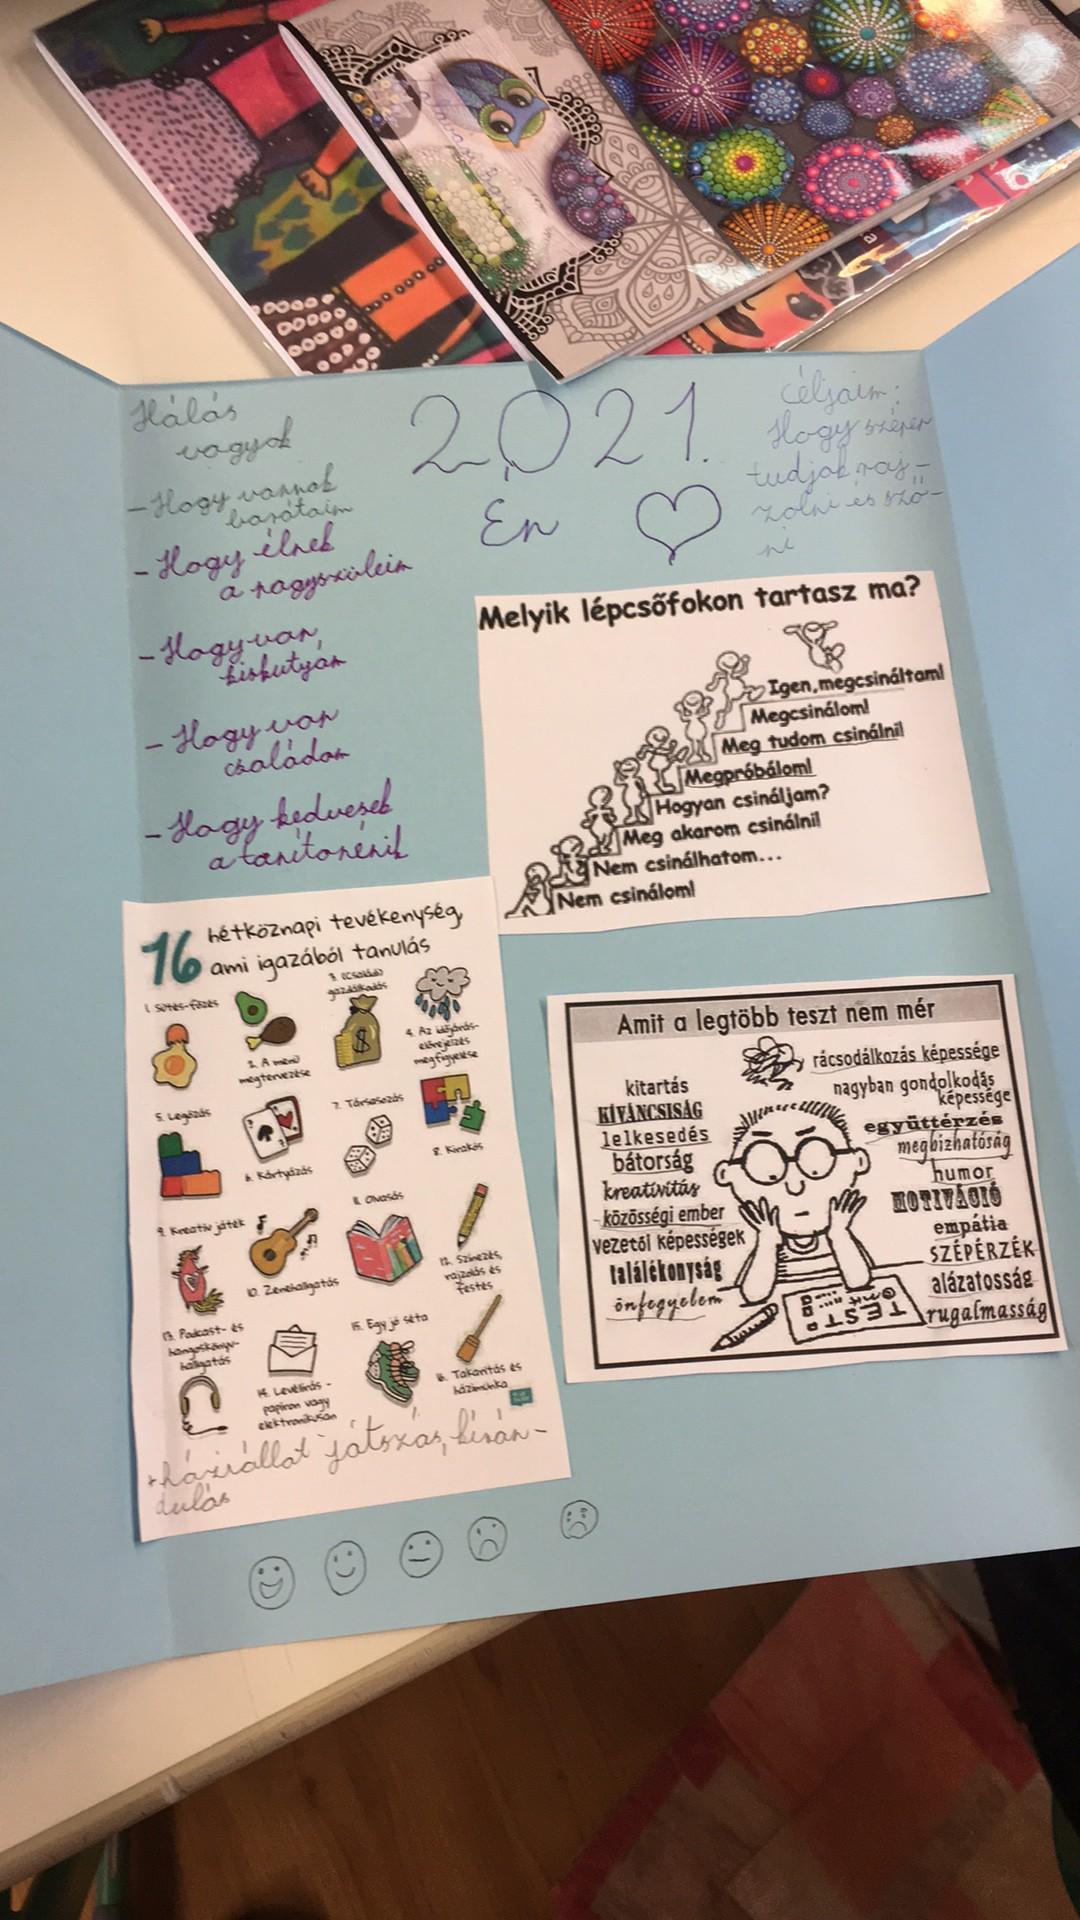 Hálás
vagyok
- Hogy vannak
barátaim
- Hogy élnek
a nagyszüleim
- Hogy van
kiskutyám
- Hogy van
családom
- Hogy kedvesek
a tanítónénik
2021.
Én
Céljaim:
Hogy szépen
tudjak raj-
zolni és sző-
ni
Melyik lépcsőfokon tartasz ma?
Igen, megcsináltam!
Megcsinálom!
Meg tudom csinálni!
Megpróbálom!
Hogyan csináljam?
Meg akarom csinálni!
Nem csinálhatom...
Nem csinálom!
16 hétköznapi tevékenység,
ami igazából tanulás
1. Sütés-főzés
2. A menü
megtervezése
3. (Családi)
gazdálkodás
4. Az időjárás-
előrejelzés
megfigyelése
5. Legózás
6. Kártyázás
7. Társasozás
8. Kirakós
9. Kreatív játék
10. Zenehallgatás
11. Olvasás
12. Színezés,
rajzolás és
festés
13. Podcast- és
hangoskönyv-
hallgatás
14. Levélírás -
papíron vagy
elektronikusan
15. Egy jó séta
16. Takarítás és
házimunka
+háziállat játszás, kirán-
dulás
Amit a legtöbb teszt nem mér
kitartás
KÍVÁNCSISÁG
lelkesedés
bátorság
kreativitás
közösségi ember
vezetői képességek
találékonyság
önfegyelem
rácsodálkozás képessége
nagyban gondolkodás
képessége
együttérzés
megbízhatóság
humor
MOTIVÁCIÓ
empátia
SZÉPÉRZÉK
alázatosság
rugalmasság
TEST